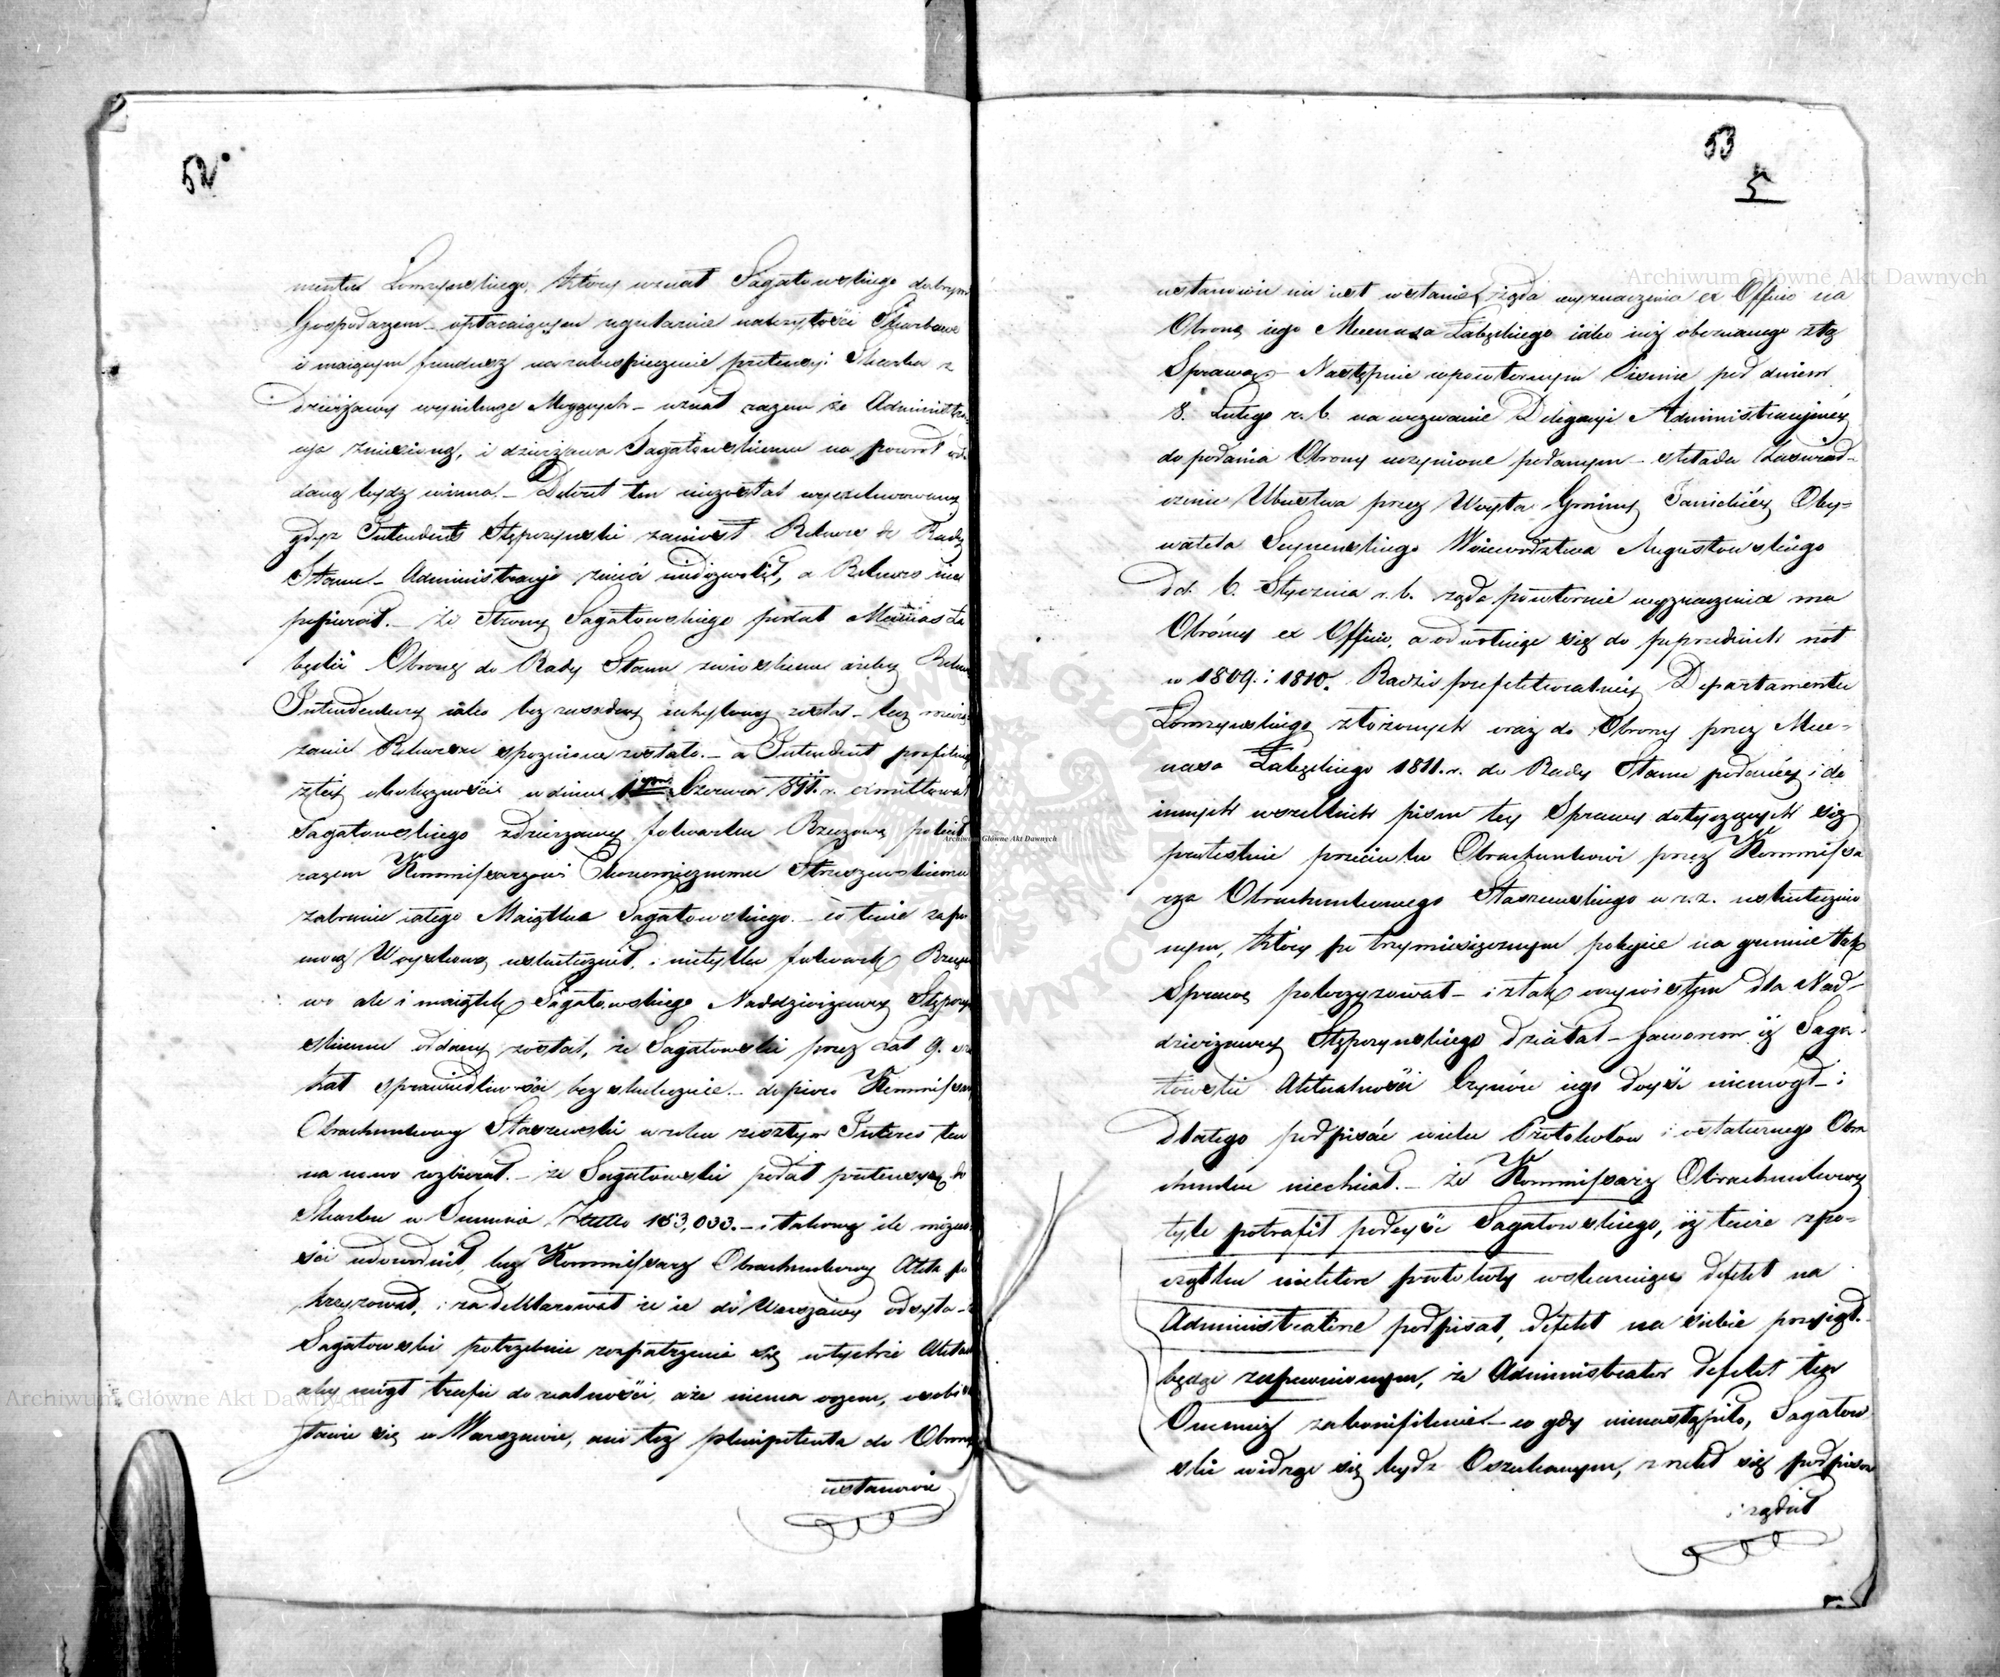 52
mentu Łomżynskiego, który uznał Sagatowskiego dobrym
Gospodarzem opłacaiącym regularnie należytości Skarbowe
i maiącym fundusz na zabespieczenie pretensyi Skarbu z
Dzierżawy wyniknąć Mogących – uznał razem że Administra-
cya zniesioną, i dzierżawa Sagatowskiemu na powrót od-
daną bydź winna. – Dekret ten niezostał wyexekwowany
gdyż Intendent Stępczynski zaniosł Rekurs do Rady
Stanu – Administracyi znieść niedozwolił, a Rekursu nie
popierał. – Ze Strony Sagatowskiego podał Mecenas Ła
będzki Obronę do Rady Stanu z wnioskiem ażeby Rekurs
Intendentury iako bez zasadny uchylony został – lecz
Rekursu spoznione zostało. – a Intendent
z tey okoliczności w dniu 1 Czerwca 1811. r. exmittował
Sagatowskiego z dzierżawy folwarku Brzozowa polecił
razem Kommissarzowi Ekonomicznemu Straszewskiemu
zabranie całego Maiątku Sagatowskiego. – co tenże za po
mocą Woyskową uskutecznił, i nietylko folwark Brzozo
wo ale i maiątek Sagatowskiego Naddzierżawcy Stępczyn
skiemu oddany został, że Sagatowski przez Lat 9. szu
kał sprawiedliwości bezskutecznie. – dopiero Kommissarz
Obrachunkowy Staszewski w roku zeszłym Interes ten
na nowo rozbierał. – że Sagatowski podał pretensyą do
Skarbu w Summie 153,033. – i takową ile możno-
ści udowodnił, lecz Kommissarz Obrachunkowy Akta po
krzyzował, i zadeklarował że ie do Warszawy odsyła –
Sagatowski potrzebnie rozpatrzenia się w tychże Aktach
aby mógł trafić do realności, a że niema o czem, osobiście
stawić się w Warszawie, ani też plenipotenta do Obrony
ustanowić
53
5
ustanowić nie iest w stanie, żąda wyznaczenia ex Officio na
Obronę iego Mecenasa Łabęckiego iako iuż obeznanego z tą
Sprawą – Następnie w powtornym Pismie pod dniem
8. Lutego r. b. na wezwanie Delegacyi Administracyjnéy
do podania Obrony uczynione podanym – składa Zaświad-
czenie Ubóstwa przez Woyta Gminy Janickiéy Oby-
watela Seynenskiego Woiewództwa Augustowskiego
Dd. 6. Stycznia r. b. żąda powtornie wyznaczenia mu
Obrony ex Officio, a odwołuiąc się do poprzednich not
w 1809. i 1810. Radzie prefekturalnéy Departamentu
Łomżynskiego złożonych oraz do Obrony przez Mece-
nasa Łabęckiego 1811. r. do Rady Stanu podanéy i do
innych wszelkich pism tey Sprawy dotyczących się
protestuie przeciwko Obrachunkowi przez Kommissa
rza Obrachunkowego Staszewskiego w r. z. uskutecznio
nym, który po trzymiesięcznym pobycie na gruncie tak
Sprawę pokrzyzował – i z tak oczywistym dla Nad-
dzierżawcy Stępczynskiego działał faworem iż Saga-
towski Aktualności Czynów iego doyść niemógł – i
Dlatego podpisać wielu Protokułów i ostatecznego Obra
chunku niechciał. – że Kommissarz Obrachunkowy
tyle potrafił podeyść Sagatowskiego, iż tenże z po-
czątku niektóre protokuły wskazuiące defekt na
Administratorze podpisał, defekt na siebie przyiął.
będąc zapewnionym, że Administrator defekt ten
Onemuż zabonifikuie – co gdy nienastąpiło, Sagatow
ski widząc się bydź Oszukanym, zrzekł się podpisów
i żądał